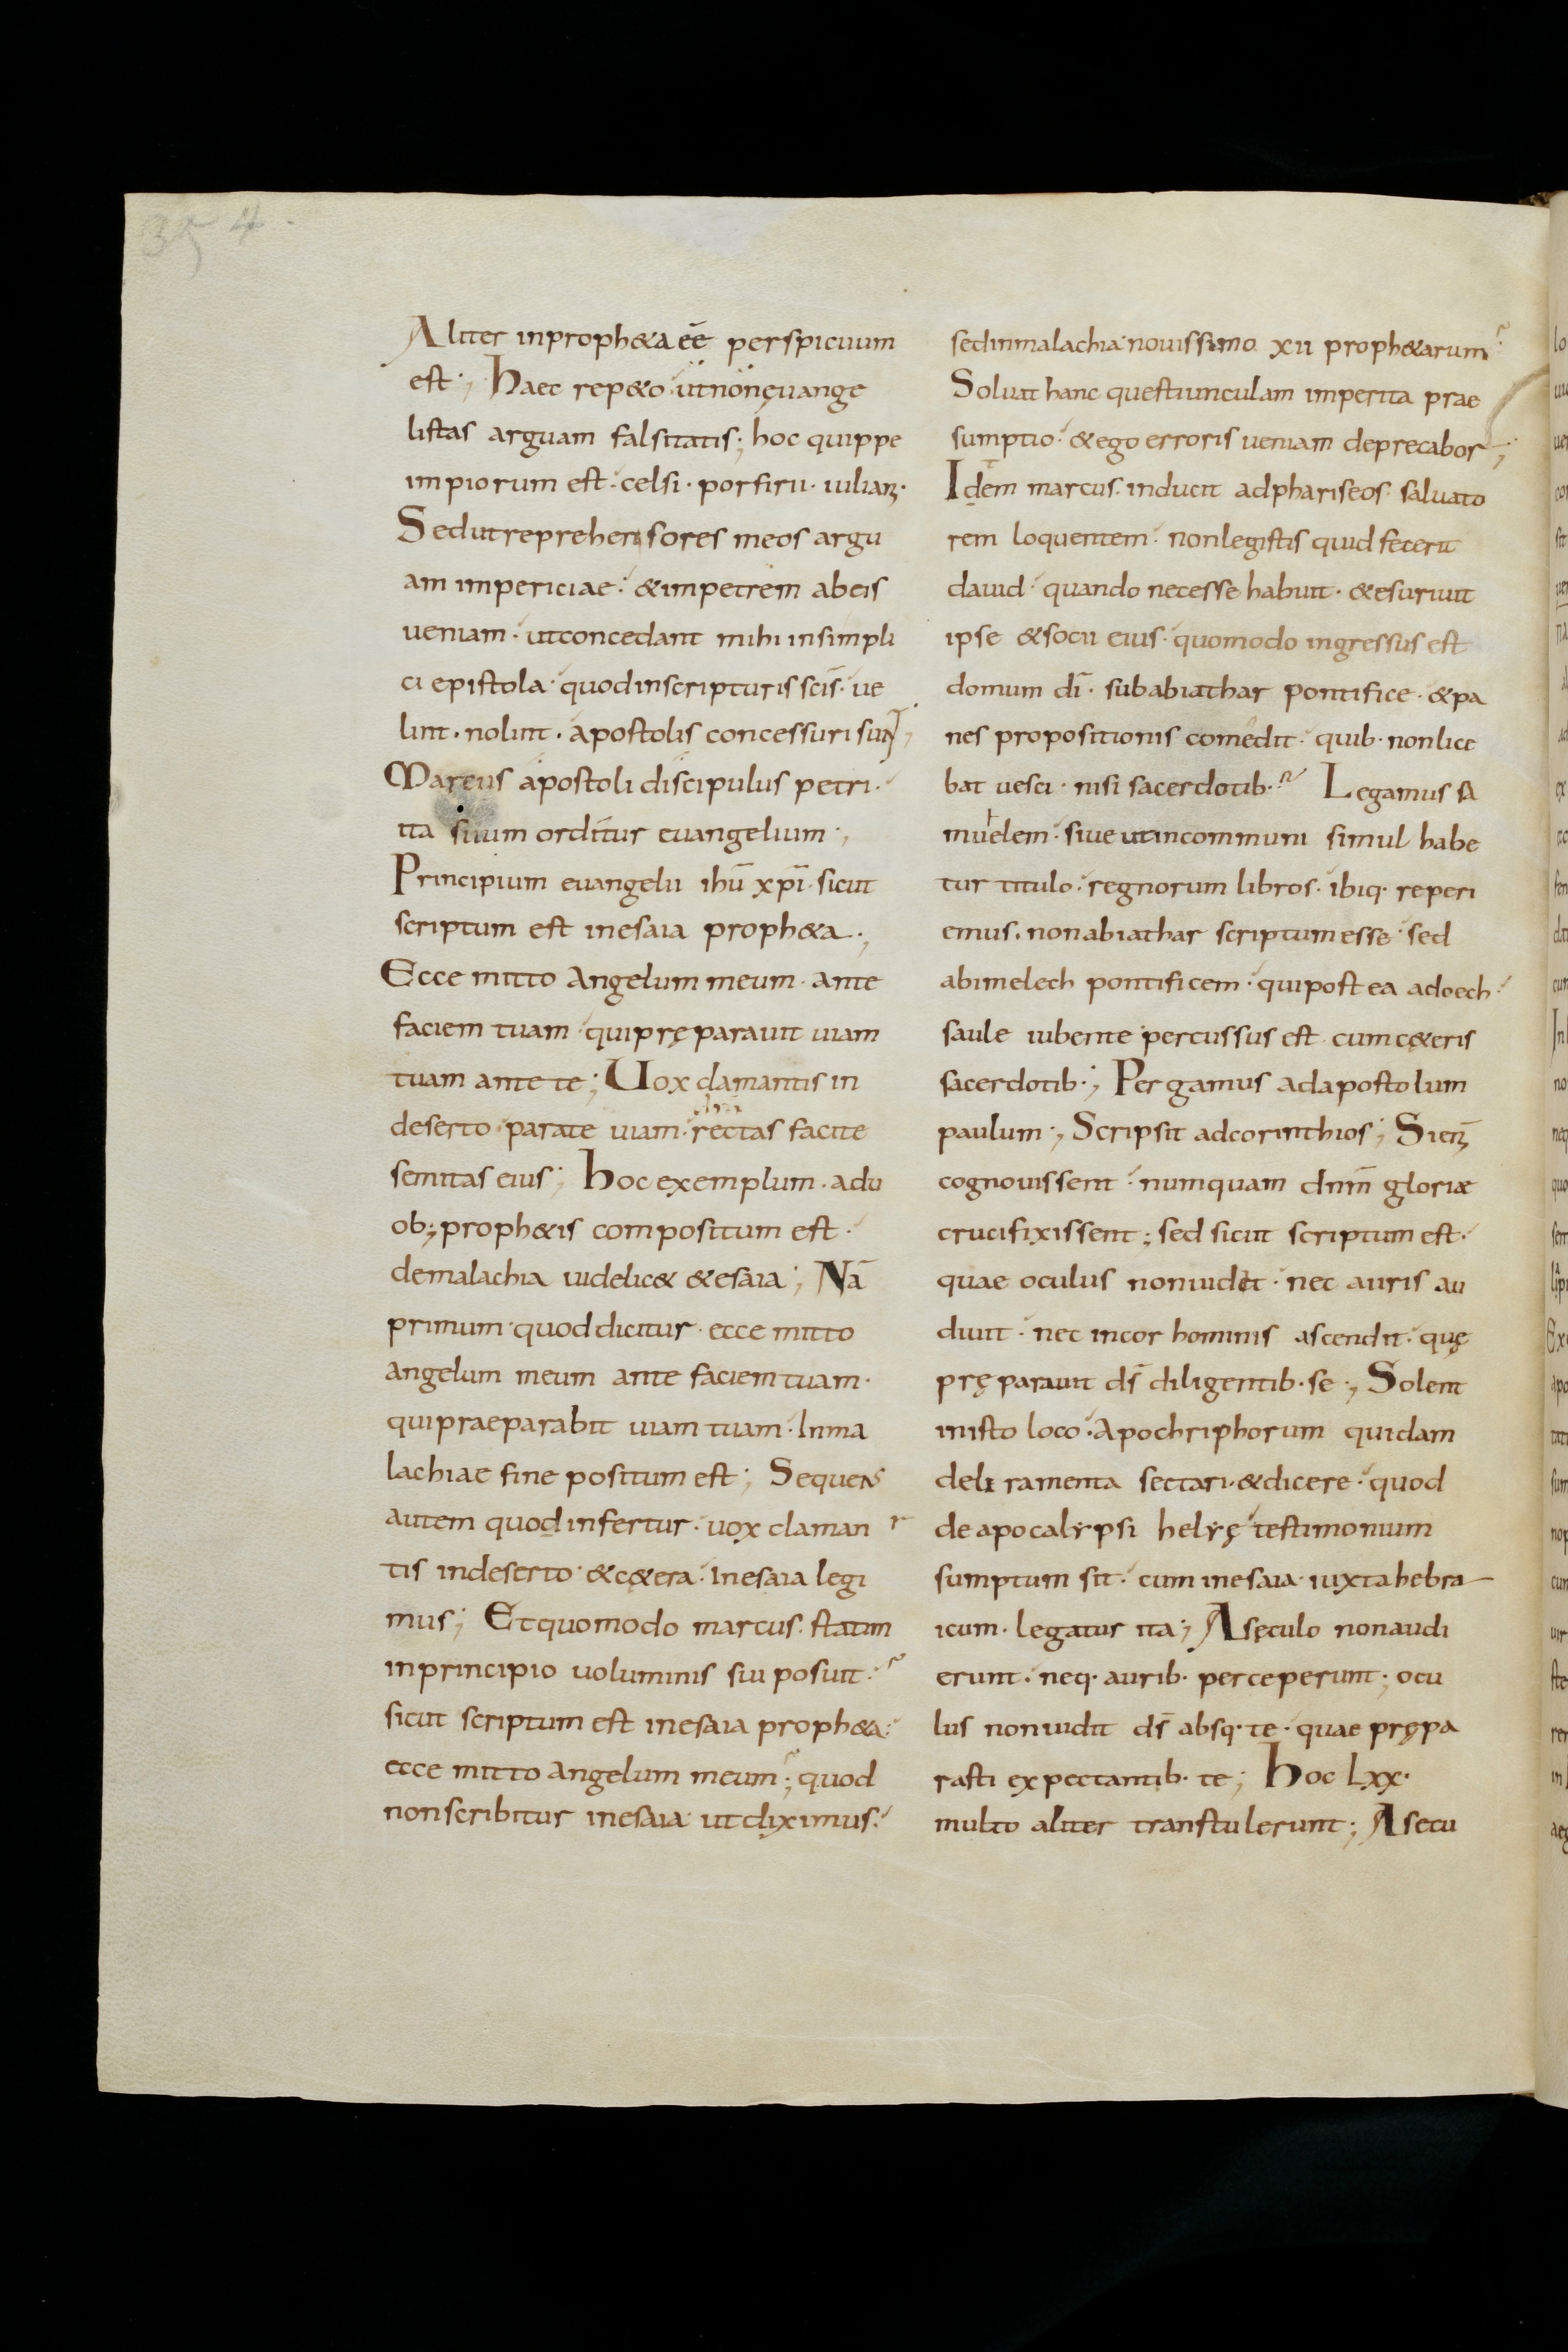 354.
Aliter inproph&a eē perspicuum
est; Haec rep&o utnonęuange
listas arguam falsitatis; hoc quippe
impiorum est celsi porfirii iuliani
Sedutreprehensores meos argu
am impericiae &impetrem abeis
ueniam utconcedant mihi insimpli
ci epistola quodinscripturis scīs ue
lint nolint apostolis concessuri sunt;
Marcus apostoli discipulus petri
ita suum orditur euangelium;
Principium euangelii ihū xp̄i sicut
scriptum est inesaia proph&a;
Ecce mitto Angelum meum ante
faciem tuam quipręparauit uiam
tuam ante te; Uox clamantis in
deserto parate uiam rectas facite
semitas eius; Hoc exemplum adu
ob; proph&is compositum est
demalachia uidelic& &esaia; Nā
primum quoddicitur ecce mitto
angelum meum ante faciemtuam
quipraeparabit uiam tuam Inma
lachiae fine positum est; Sequens
autem quodinfertur uox claman
tis indeserto &c&era inesaia legi
mus; Etquomodo marcus statim
inprincipio uoluminis sui posuit
sicut scriptum est inesaia proph&a
ecce mitto angelum meum; quod
nonscribitur inesaia utdiximus
sedinmalachia nouissimo xii proph&arum
Soluat hanc questiunculam imperita prae
sumptio &ego erroris ueniam deprecabor;
Idem marcus inducit adphariseos saluato
rem loquentem nonlegistis quid fecerit
dauid quando necesse habuit &esuriuit
ipse &socii eius quomodo ingressus est
domum dī subabiathar pontifice &pa
nes propositionis comedit quib· nonlice
bat uesci nisi sacerdotib· Legamus sa
muelem siue utincommuni simul habe
tur titulo regnorum libros ibiq· reperi
emus nonabiathar scriptumesse sed
abimelech pontificem quipostea adoech
saule iubente percussus est cumc&eris
sacerdotib·; Pergamus adapostolum
paulum; Scripsit adcorinthios; Sieni
cognouissent numquam dnm̄ gloriæ
crucifixissent; sed sicut scriptum est
quae oculus nonuidit nec auris au
diuit nec incor hominis ascendit quę
pręparauit ds̄ diligentib· se; Solent
inisto loco Apochriphorum quidam
deliramenta sectari &dicere quod
de apocalypsi helyę testimonium
sumptum sit cum inesaia iuxtahebra
icum legatur ita; Asęculo nonaudi
erunt neq· aurib· perceperunt; ocu
lus nonuidit ds̄ absq· te quae prępa
rasti expectantib· te; Hoc Lxx
multo aliter transtulerunt; Asecu